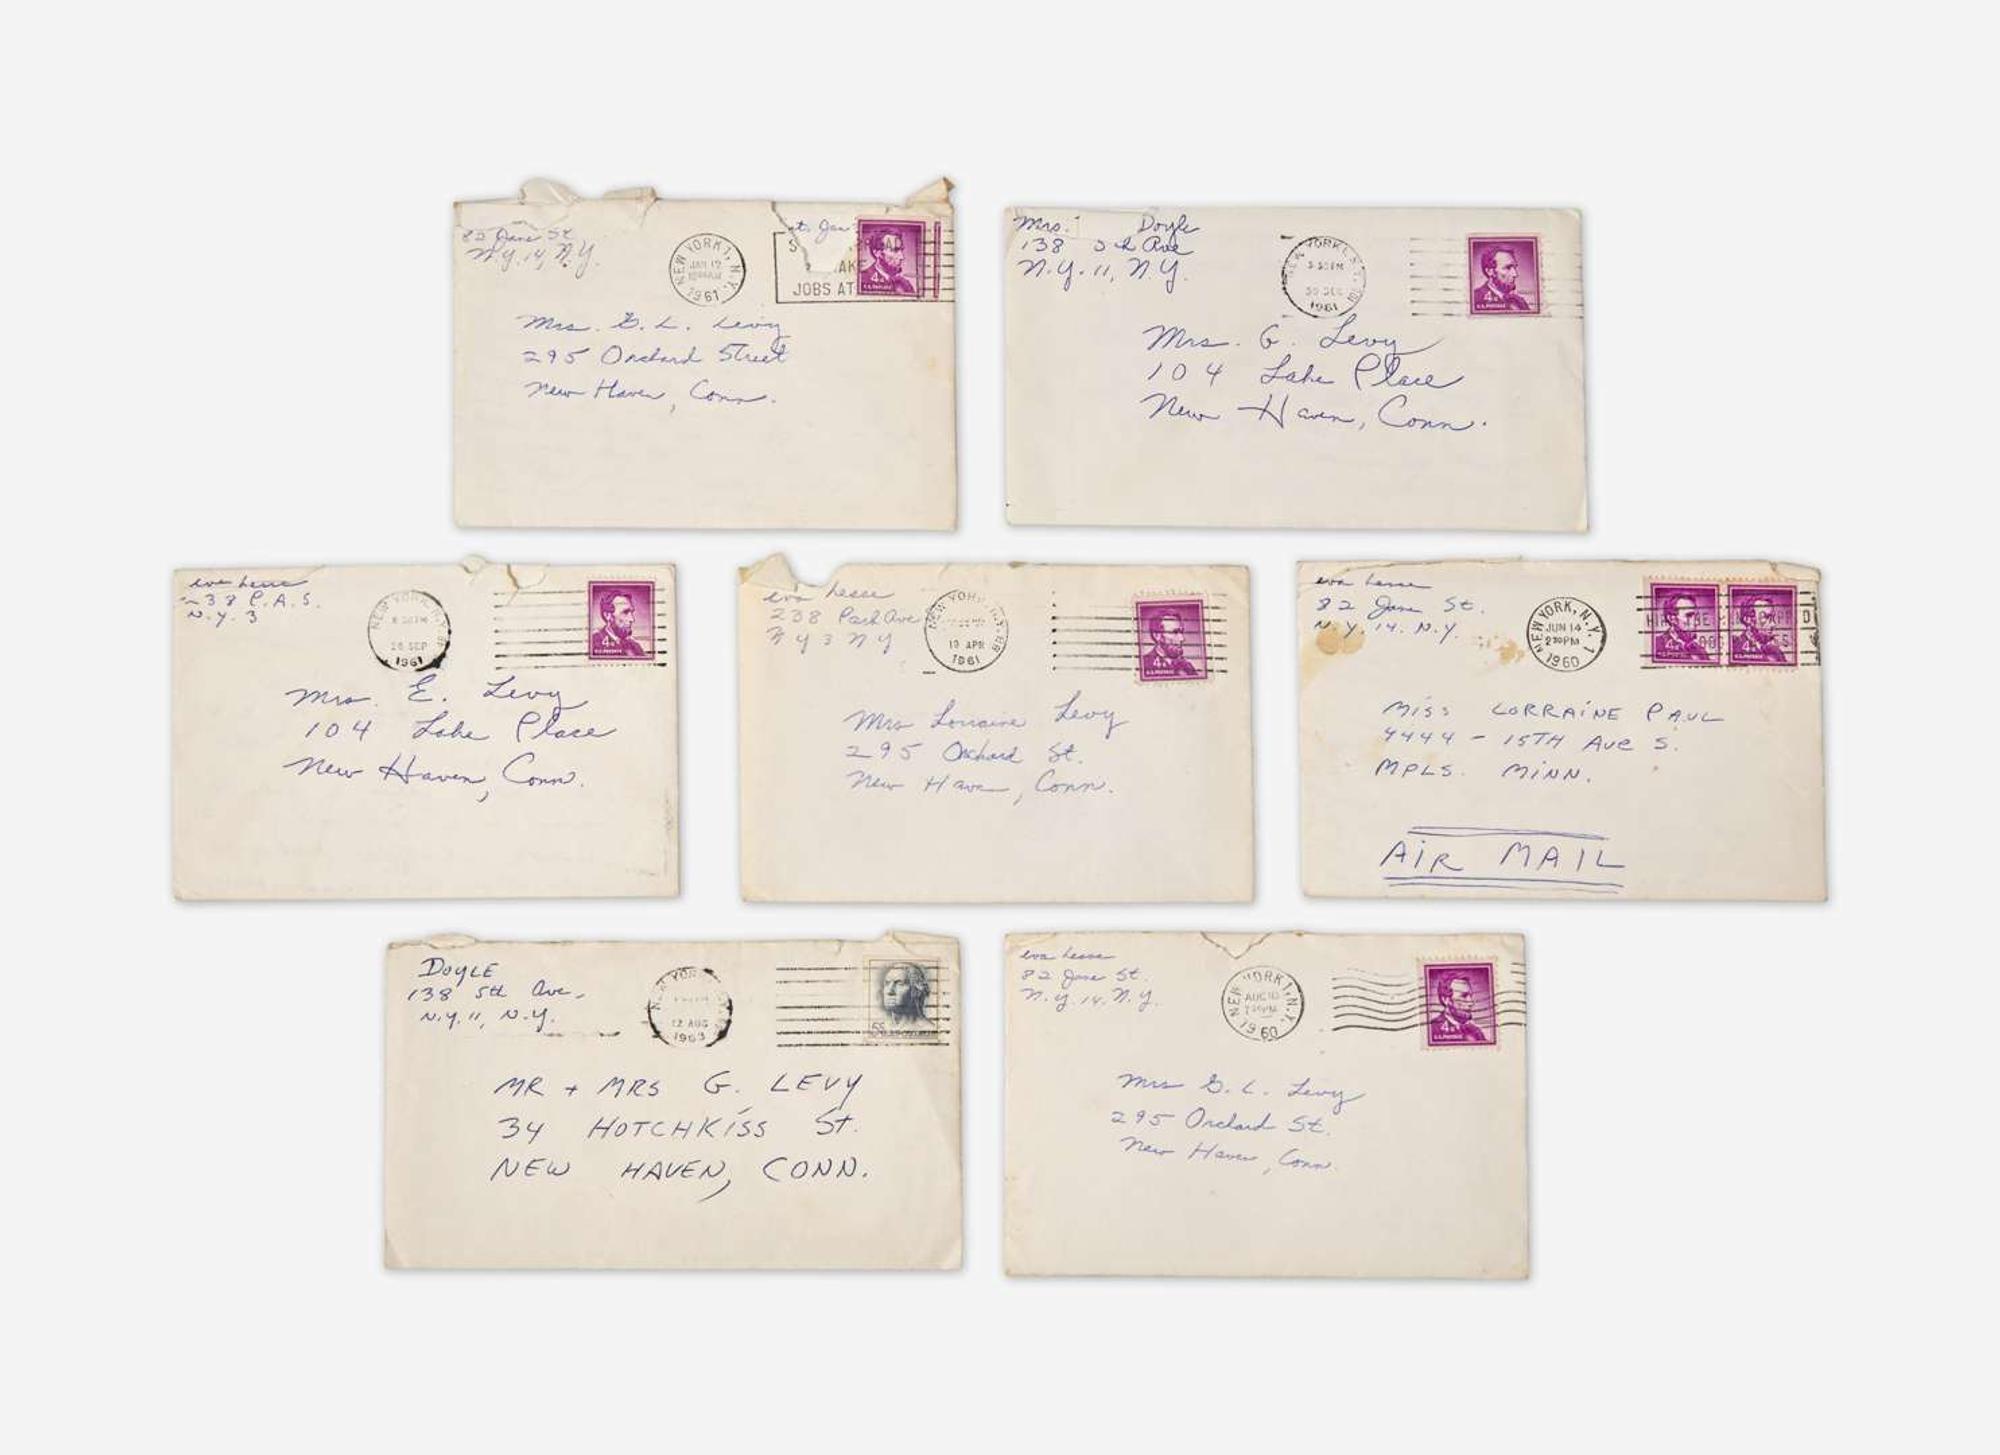 82 Jane St
N.Y. 14, N.Y.
NEW YORK 1, N.Y.
JAN 12
1961
JOBS AT
4¢
Mrs. G. L. Levy
295 Orchard Street
New Haven, Conn.
Mrs. Doyle
138 5th Ave
N.Y. 11, N.Y.
5:30 PM
30 DEC
1961
4¢
U.S. POSTAGE
Mrs. G. Levy
104 Lake Place
New Haven, Conn.
eva hesse
238 P.A.S.
N.Y. 3
NEW YORK, N.Y.
26 SEP
1961
4¢
U.S. POSTAGE
Mrs. E. Levy
104 Lake Place
New Haven, Conn.
eva hesse
238 Park Ave
N Y 3 N Y
NEW YORK, N.Y.
19 APR
1961
4¢
U.S. POSTAGE
Mrs Lorraine Levy
295 Orchard St.
New Haven, Conn.
eva hesse
82 Jane St.
N.Y. 14. N.Y.
NEW YORK, N.Y. 1
JUN 14
2 30 PM
1960
MISS LORRAINE PAUL
4444 - 15TH AVE S.
MPLS. MINN.
AIR MAIL
DOYLE
138 5th Ave.
N.Y. 11, N.Y.
12 AUG
1963
5¢
MR + MRS G. LEVY
34 HOTCHKISS St.
NEW HAVEN, CONN.
eva hesse
82 Jane St.
N.Y. 14, N.Y.
NEW YORK 1, N.Y.
AUG 10
1960
4¢
U.S. POSTAGE
Mrs G. L. Levy
295 Orchard St.
New Haven, Conn.